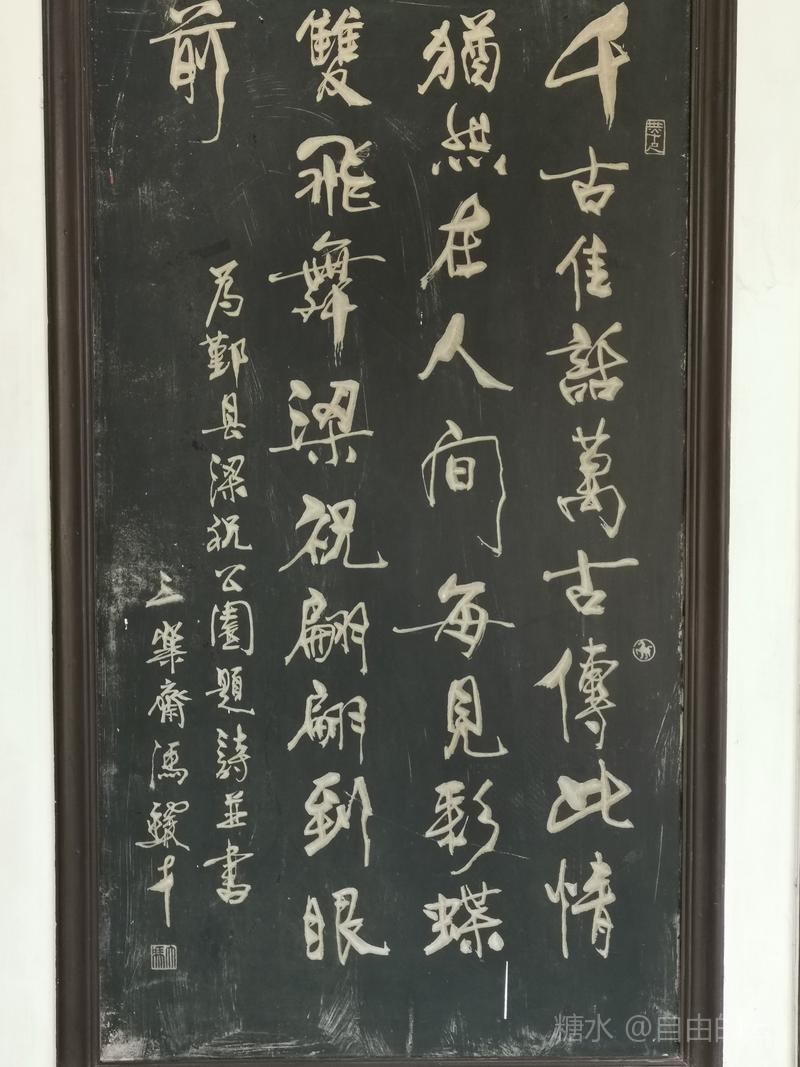 千古佳話萬古傳此情
猶然在人間每見彩蝶
雙飛舞梁祝翩翩到眼
前
為鄞县梁祝公園題詩並書
三業齋馮驥才
糖水 @自由的